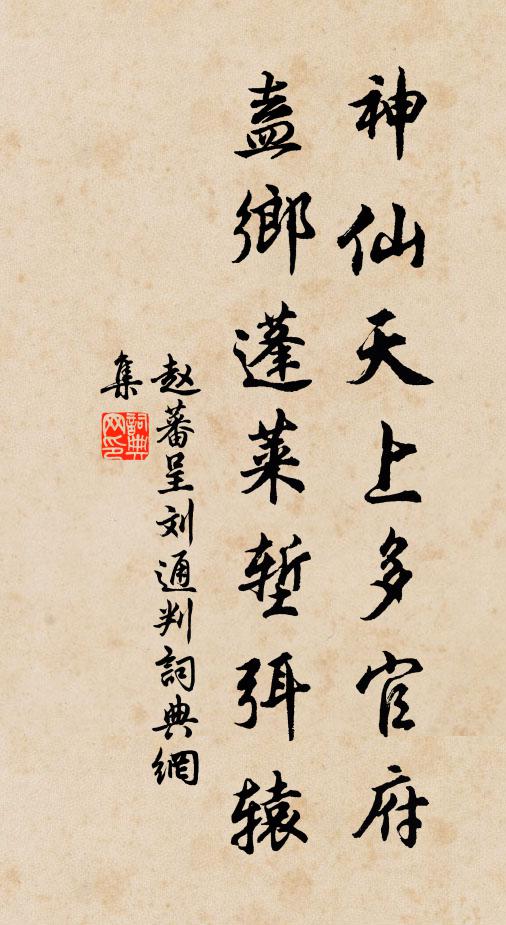 神仙天上多官府
盍鄉蓬莱堑弭辕
赵蕃呈刘通判詞典網
集
詞典
网印